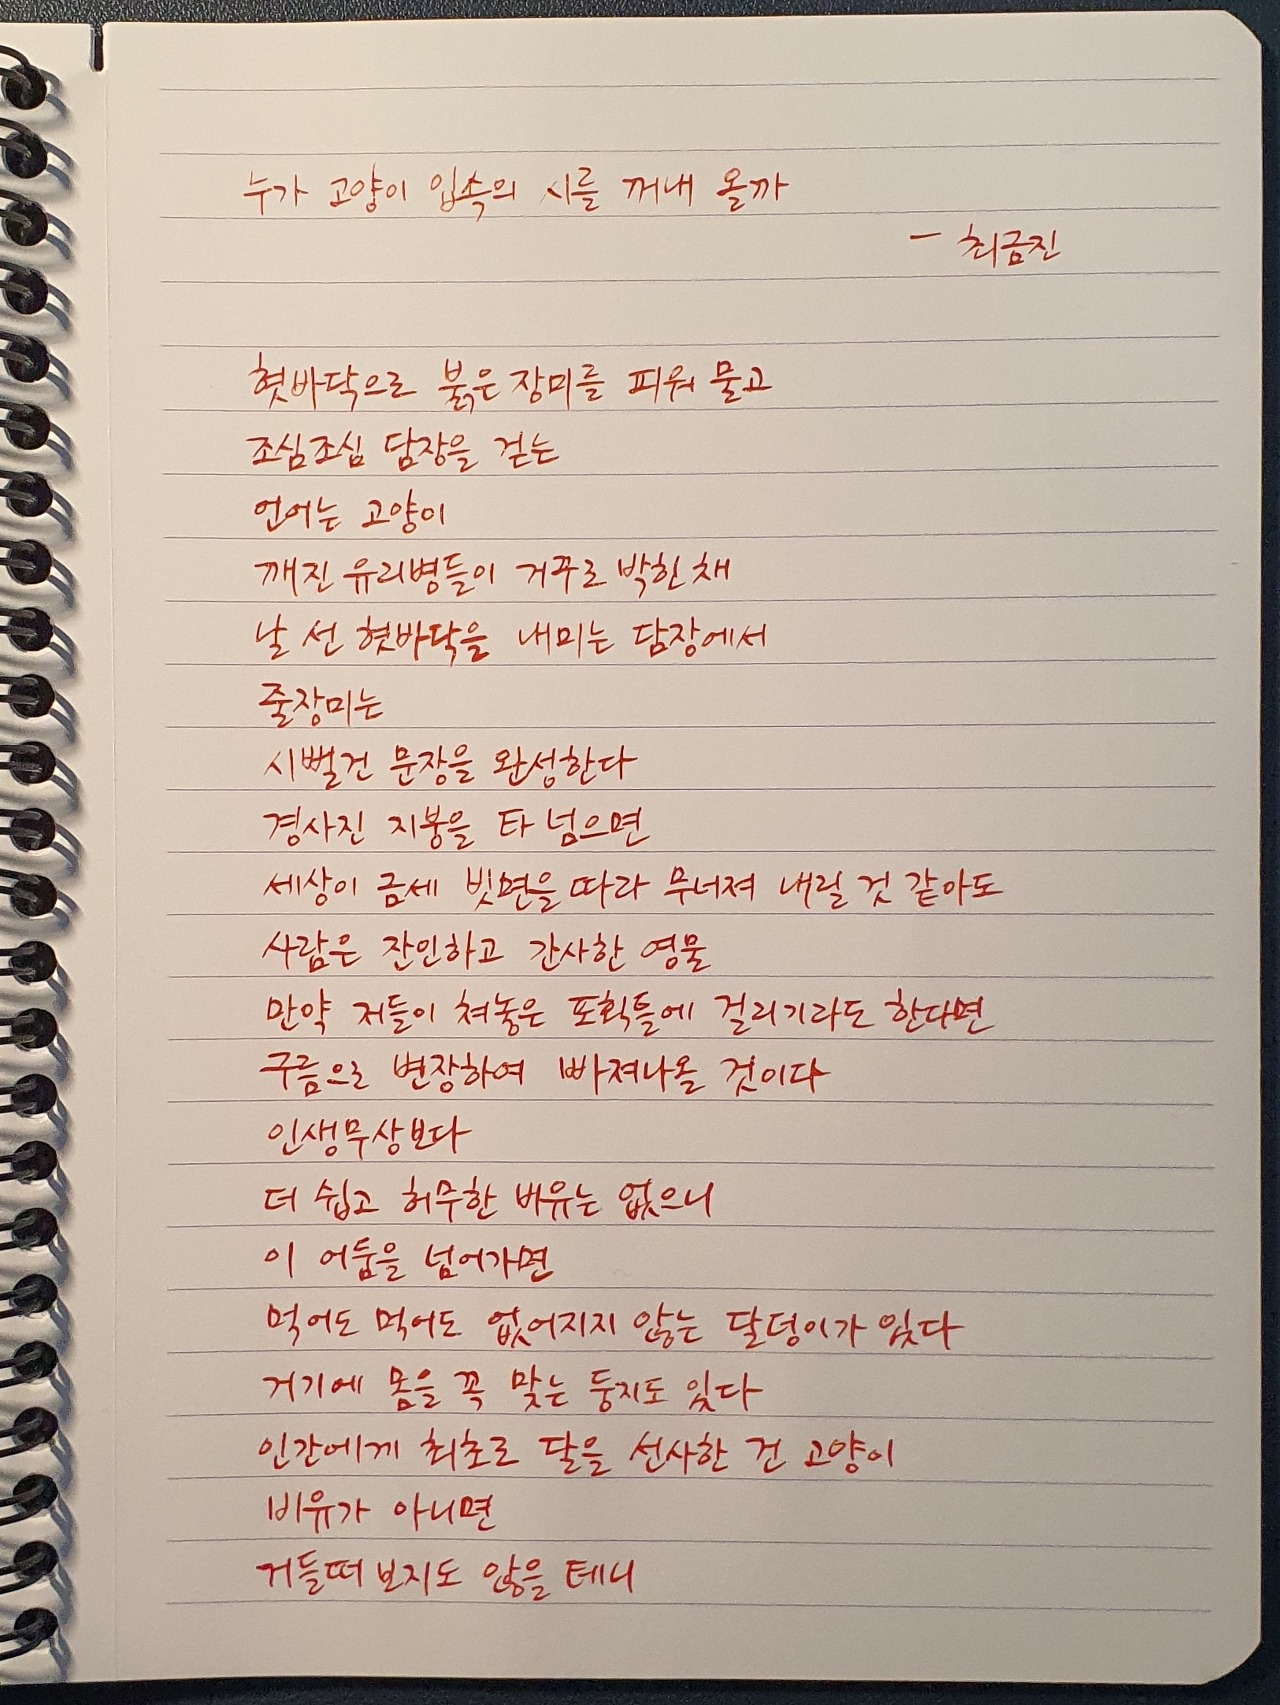 누가 고양이 입속의 시를 꺼내 올까
- 최금진
혓바닥으로 붉은 장미를 피워 물고
조심조심 담장을 걷는
언어는 고양이
깨진 유리병들이 거꾸로 박힌 채
날 선 혓바닥을 내미는 담장에서
줄장미는
시뻘건 문장을 완성한다
경사진 지붕을 타 넘으면
세상이 금세 빗면을 따라 무너져 내릴 것 같아도
사람은 잔인하고 간사한 영물
만약 저들이 쳐놓은 포획틀에 걸리기라도 한다면
구름으로 변장하여 빠져나올 것이다
인생무상보다
더 쉽고 허무한 비유는 없으니
이 어둠을 넘어가면
먹어도 먹어도 없어지지 않는 달덩이가 있다
거기에 몸을 꼭 맞는 둥지도 있다
인간에게 최초로 달을 선사한 건 고양이
비유가 아니면
거들떠 보지도 않을 테니